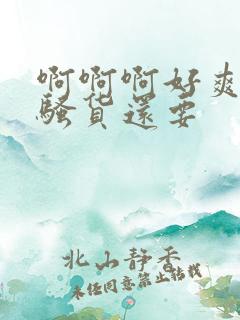 啊啊啊好爽
骚货还要
北山静香
未经同意禁止转载